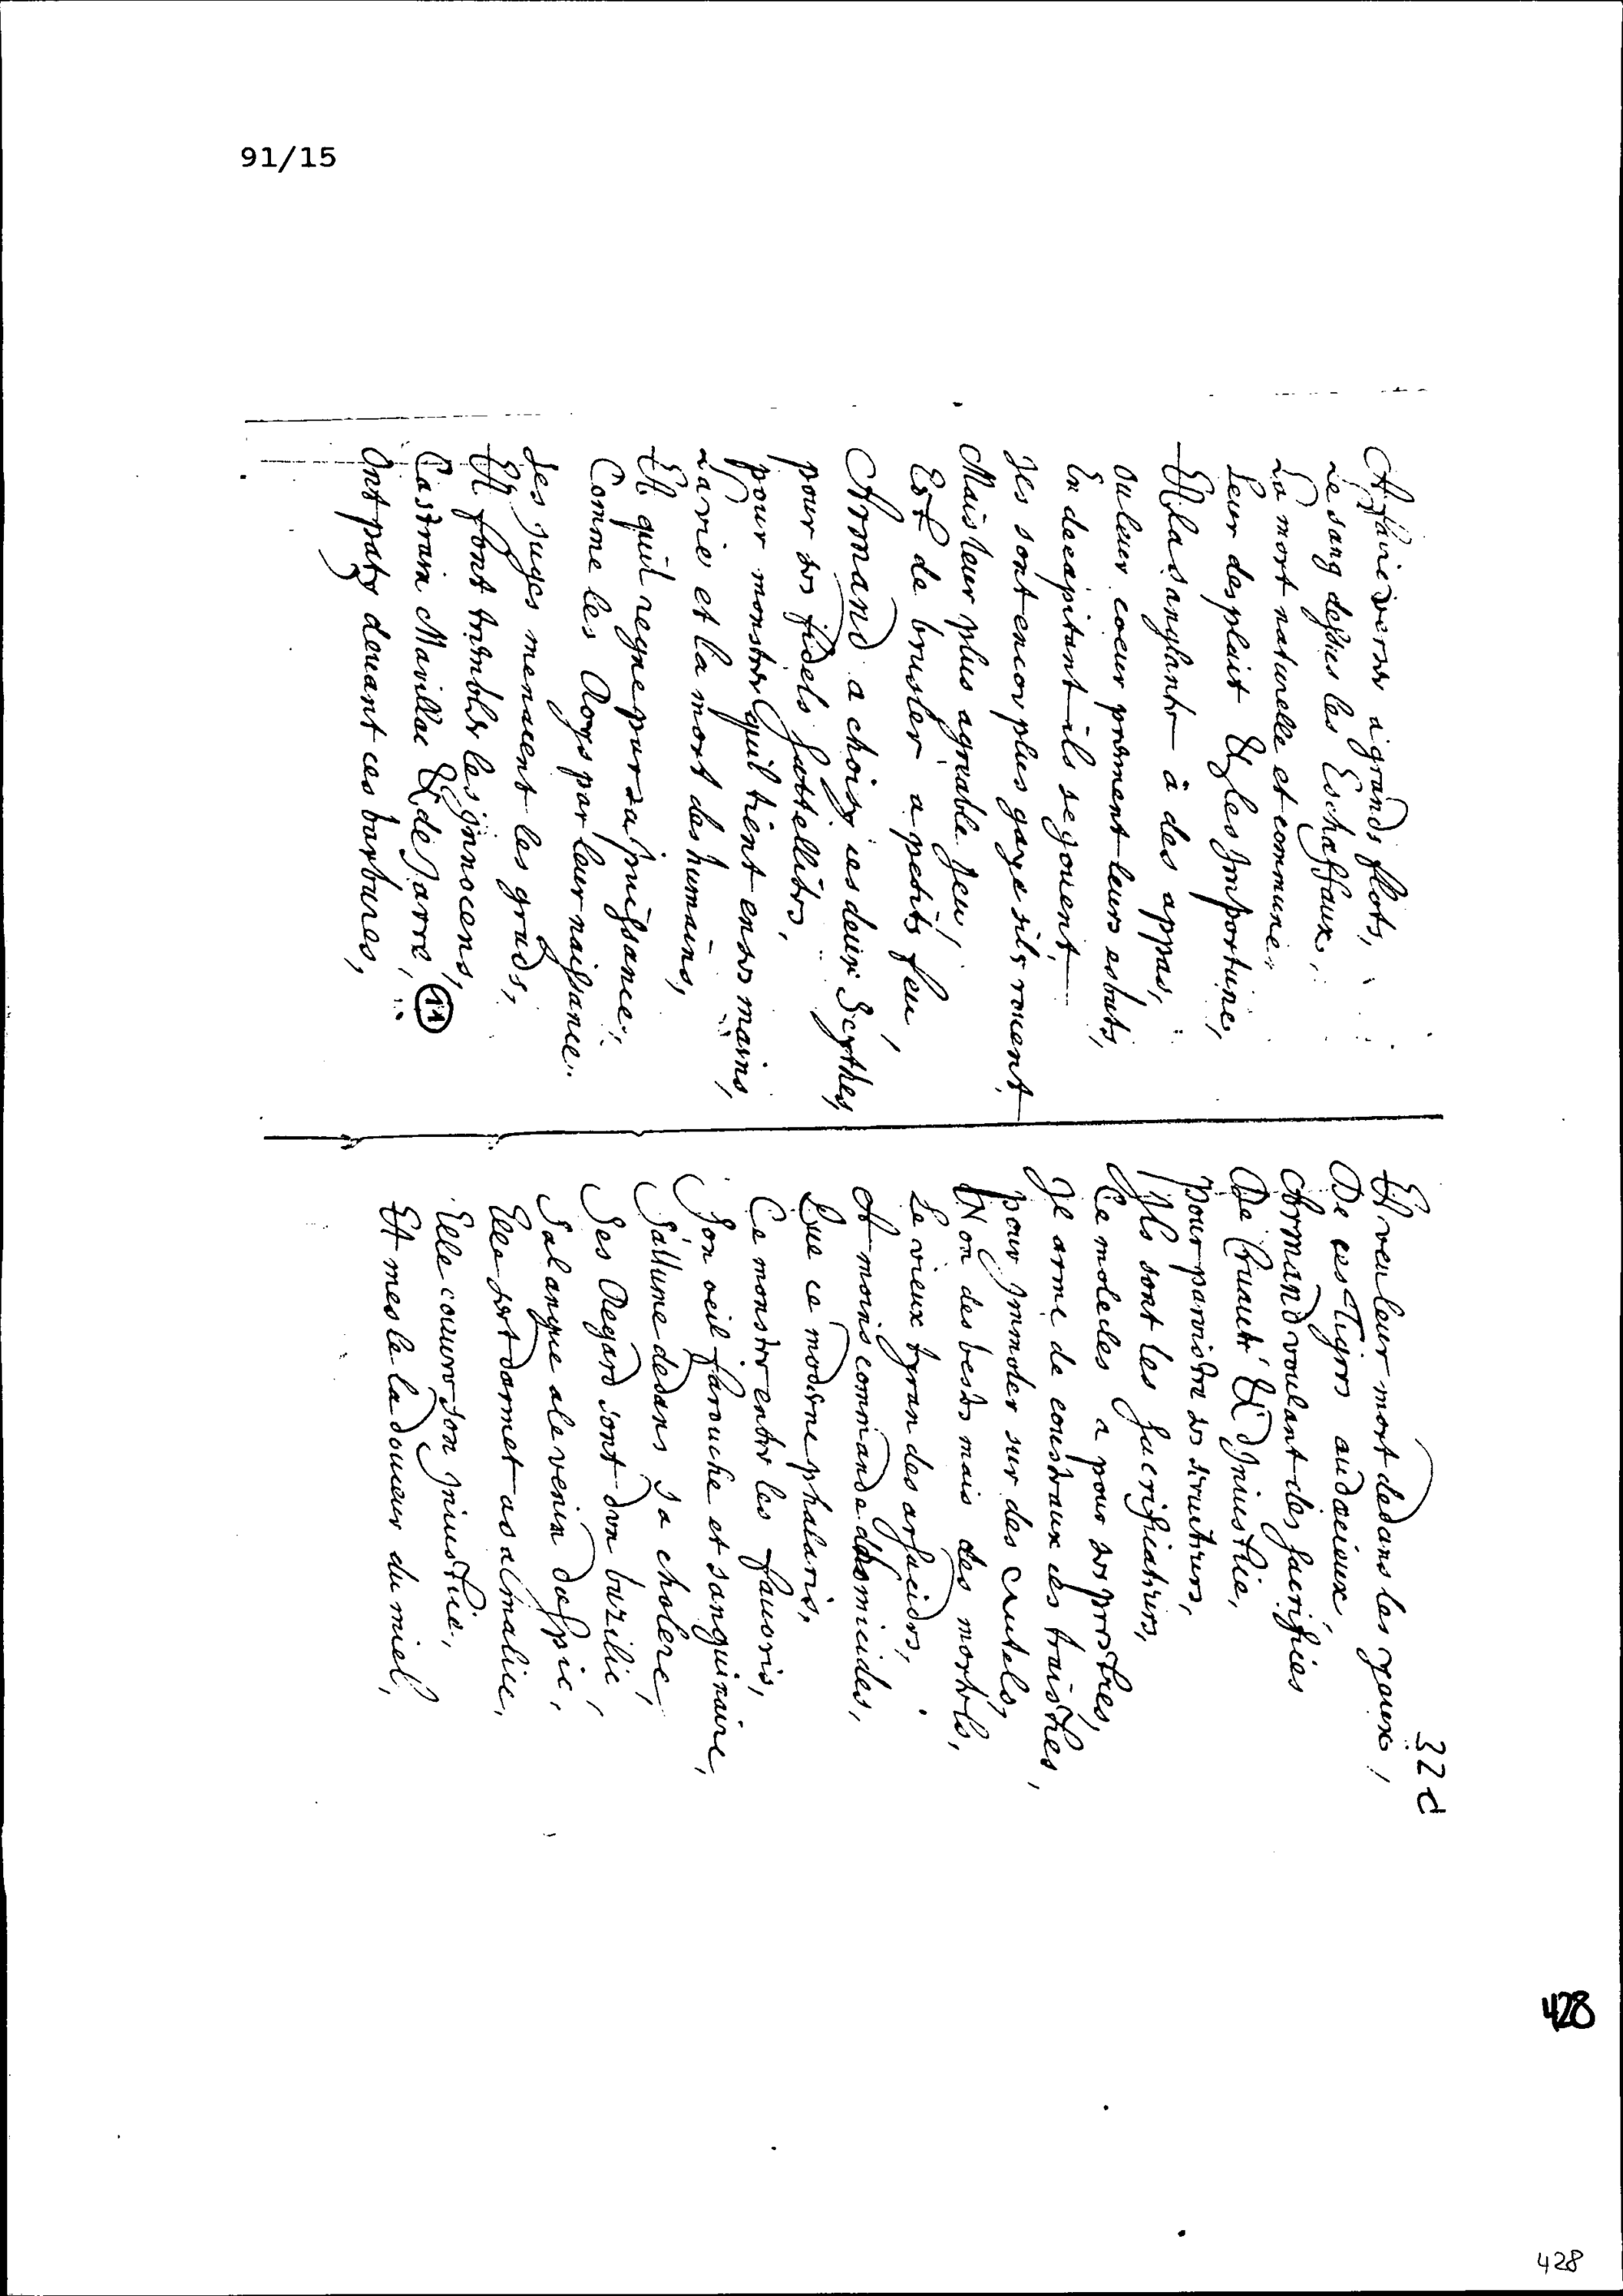 91/15
A faire verser a grands flots,
Le sang dessus les Eschaffaux,
La mort naturelle et commune
Leur desplait & les jmportune,
Et la sanglante à des appas,
Ou leur coeur prennent leurs esbats,
En decapitant ils se jouent,
Jls sont encor plus gays sils rouent
Mais leur plus agreable jeu,
Est de brusler a petits feu,
Armand a choisy ces deux Scythes,
pour ses fidels sattellites,
pour monstrer quil tient en ses mains,
La vie et la mort des humains,
Et quil regne par sa puissance,
Comme les Roys par leur naissance.
Ses juges menacent les grands,
Et font trembler les jnnocens,
Castrain Marillac & de Jarre,
Ont paty devant ces barbares,
11
32 d
Et veu leur mort dedans les yeux,
De ces Tigres audacieux,
Armand voulant des sacrifices
De Cruauté & djniustice,
pour paroistre ses services,
Jls sont les sacrificateurs,
Ce moloc les a pour ses prestres,
Jl arme de cousteaux ces traistres,
pour jmmoler sur des autels,
Non des bestes mais des mortels,
Le vieux tyran des arsacides,
A moins commandé dhomicides,
Que ce moderne phalaris,
Ce monstre entre les favoris,
Son oeil farouche et sanguinaire,
Sallume dedans sa cholere,
Ses Regard sont dun bazilic,
Sa langue a le venin daspic,
Elle sert darmet as a malice,
Elle couvre son jniustice,
Et mesle la douceur du miel,
428
428